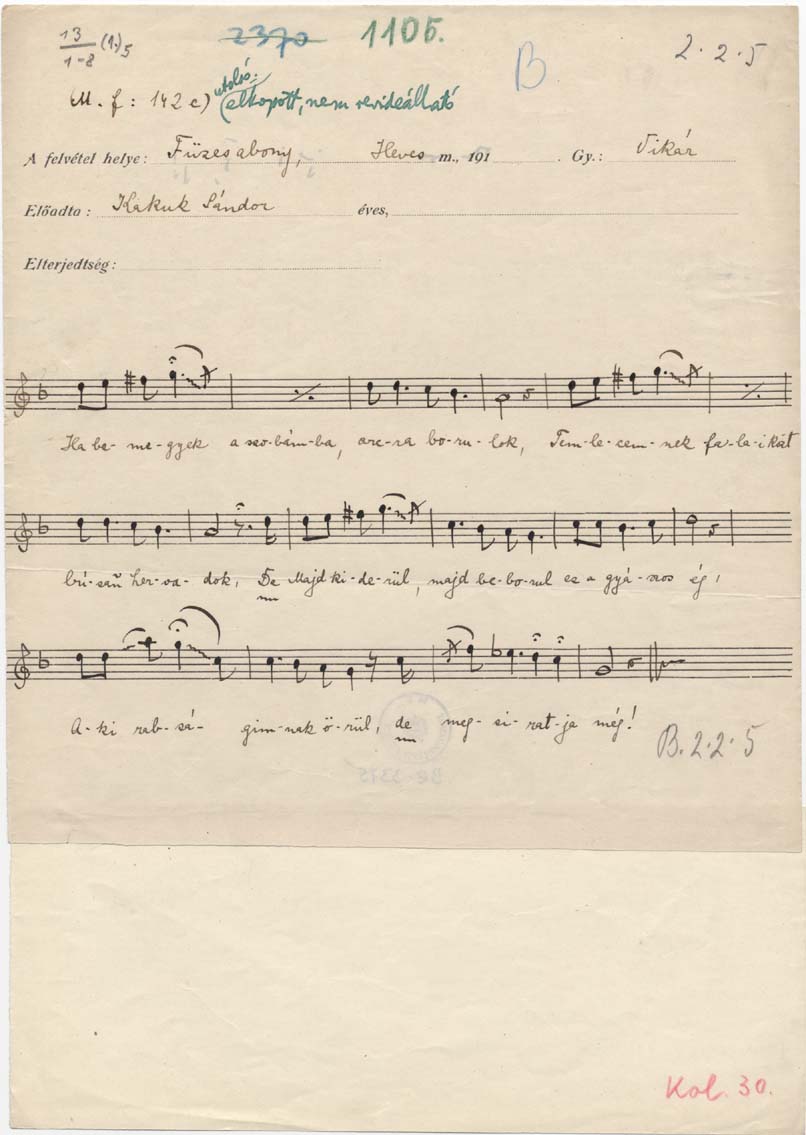 13/1-8 (1.)5 2370 1105. B 2.2.5
M. f: 142 c) utolsó: (elkopott, nem revideálható
A felvétel helye: Füzesabony, Heves m., 191 . Gy.: Vikár
Előadta: Kakuk Sándor éves,
Elterjedtség:
Ha be- me-gyek a szo-bám-ba, arc-ra bo-ru-lok, Töm-lö-cöm-nek fa-la-i-kát
bú-san her-va-dok, De Majd ki-de-rül, majd be-bo-rul ez a gyá-szos ég,
A-ki rab-sá- gim-nak ö-rül, de meg-si-rat-ja még!
B. 2.2.5
Kol. 30.